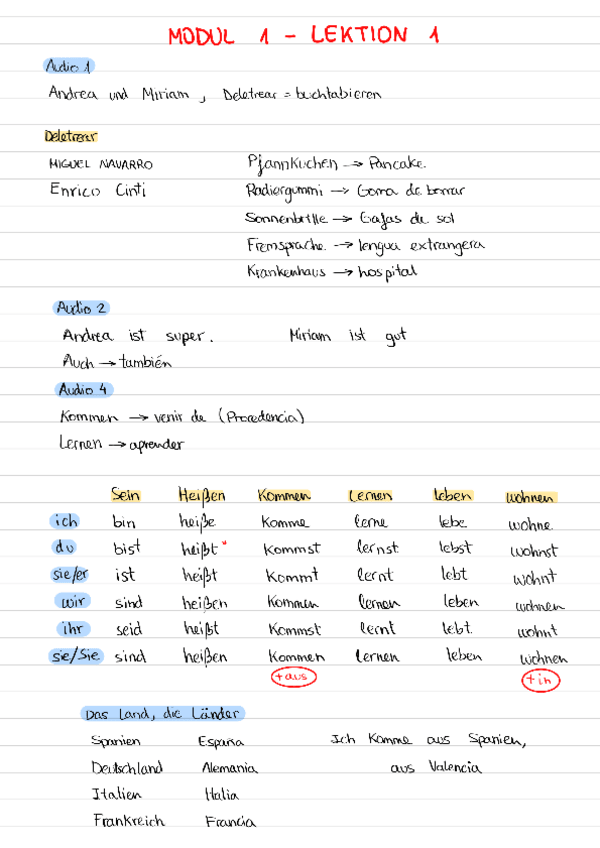 MODUL 1 - LEKTION 1
Audio 1
Andrea und Miriam, Deletrear = buchtabieren
Deletrear
MIGUEL NAVARRO
Enrico Cinti
Pfannkuchen → Pancake.
Radiergummi → Goma de borrar
Sonnenbrille → Gafas de sol
Fremsprache. → lengua extrangera
Krankenhaus → hospital
Audio 2
Andrea ist super. Miriam ist gut
Auch → también
Audio 4
Kommen → venir de (Procedencia)
Lernen → aprender
Sein Heißen Kommen Lernen leben wohnen
ich bin heiße Komme lerne lebe wohne
du bist heißt * Kommst lernst lebst wohnst
sie/er ist heißt Kommt lernt lebt wohnt
wir sind heißen Kommen lernen leben wohnen
ihr seid heißt Kommst lernt lebt wohnt
sie/Sie sind heißen Kommen lernen leben wohnen
+aus +in
Das Land, die Länder
Spanien España
Deutschland Alemania
Italien Italia
Frankreich Francia
Ich Komme aus Spanien,
aus Valencia